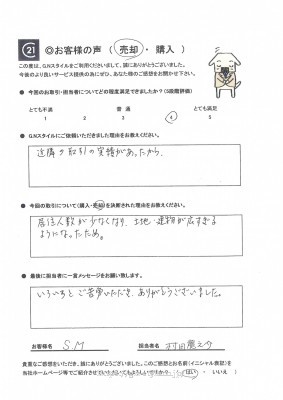 21
◎お客様の声（ 売却 ・ 購入 ）
この度は、GNスタイルをご利用くださいまして、誠にありがとうございました。
今後のより良いサービス提供の為にぜひ、あなた様のご感想をお聞かせ下さい。
● 今回のお取引・担当者についてどの程度満足できましたか？（5段階評価）
とても不満 普通 とても満足
1 2 3 4 5
● GNスタイルにご依頼いただきました理由をお教えください。
近隣の取引の実績があったから。
● 今回の取引について（購入・売却）を決断された理由をお教えください。
居住人数が少なくなり、土地・建物が広すぎる
ようになったため。
● 最後に担当者に一言メッセージをお願い致します。
いろいろとご苦労いただき、ありがとうございました。
お客様名 S.M 担当者名 村田
貴重なご感想をいただき、誠にありがとうございました。このご感想とお名前（イニシャル表記）を
当社ホームページ等でご紹介させていただいてもよろしいですか？（ はい ・ いいえ ）